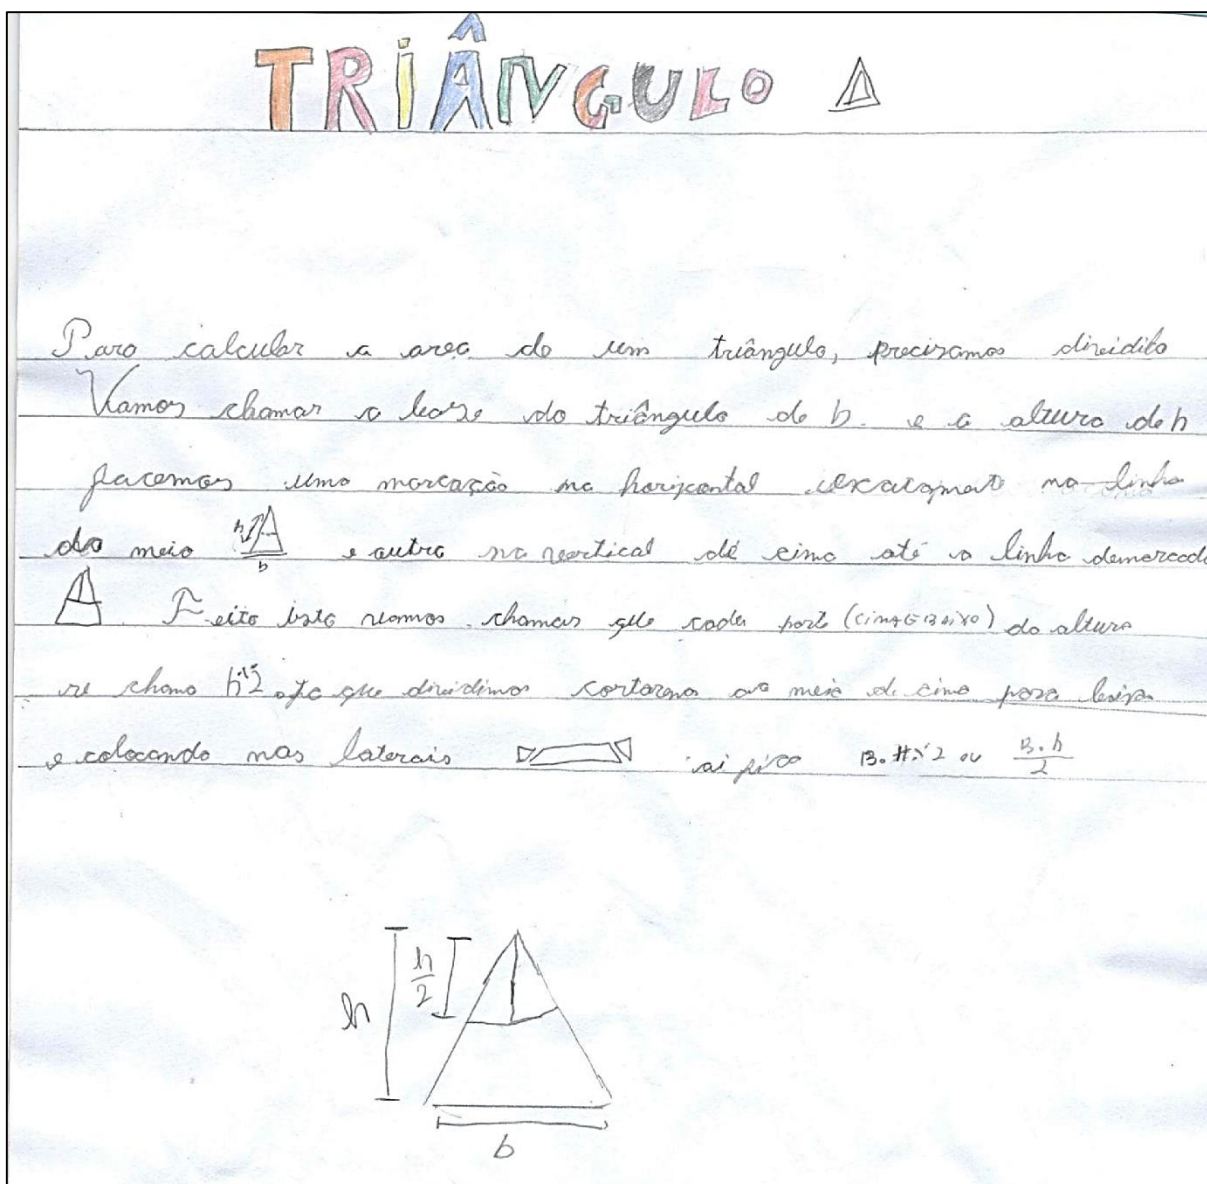 TRIÂNGULO
Para calcular a area do um triângulo, precisamos dividilo
Vamos chamar a base do triângulo de b. e a altura de h
facemos uma marcação na horizontal na linha
do meio h b e outra na vertical de cima até a linha demarcada
Feito isto vamos chamar que cada parte (cima E Baixo) da altura
se chama h÷2, que dividimos ao meio de cima para baixo
e colocando nas laterais ai fica B.H÷2 ou B.h/2
h
h/2
b